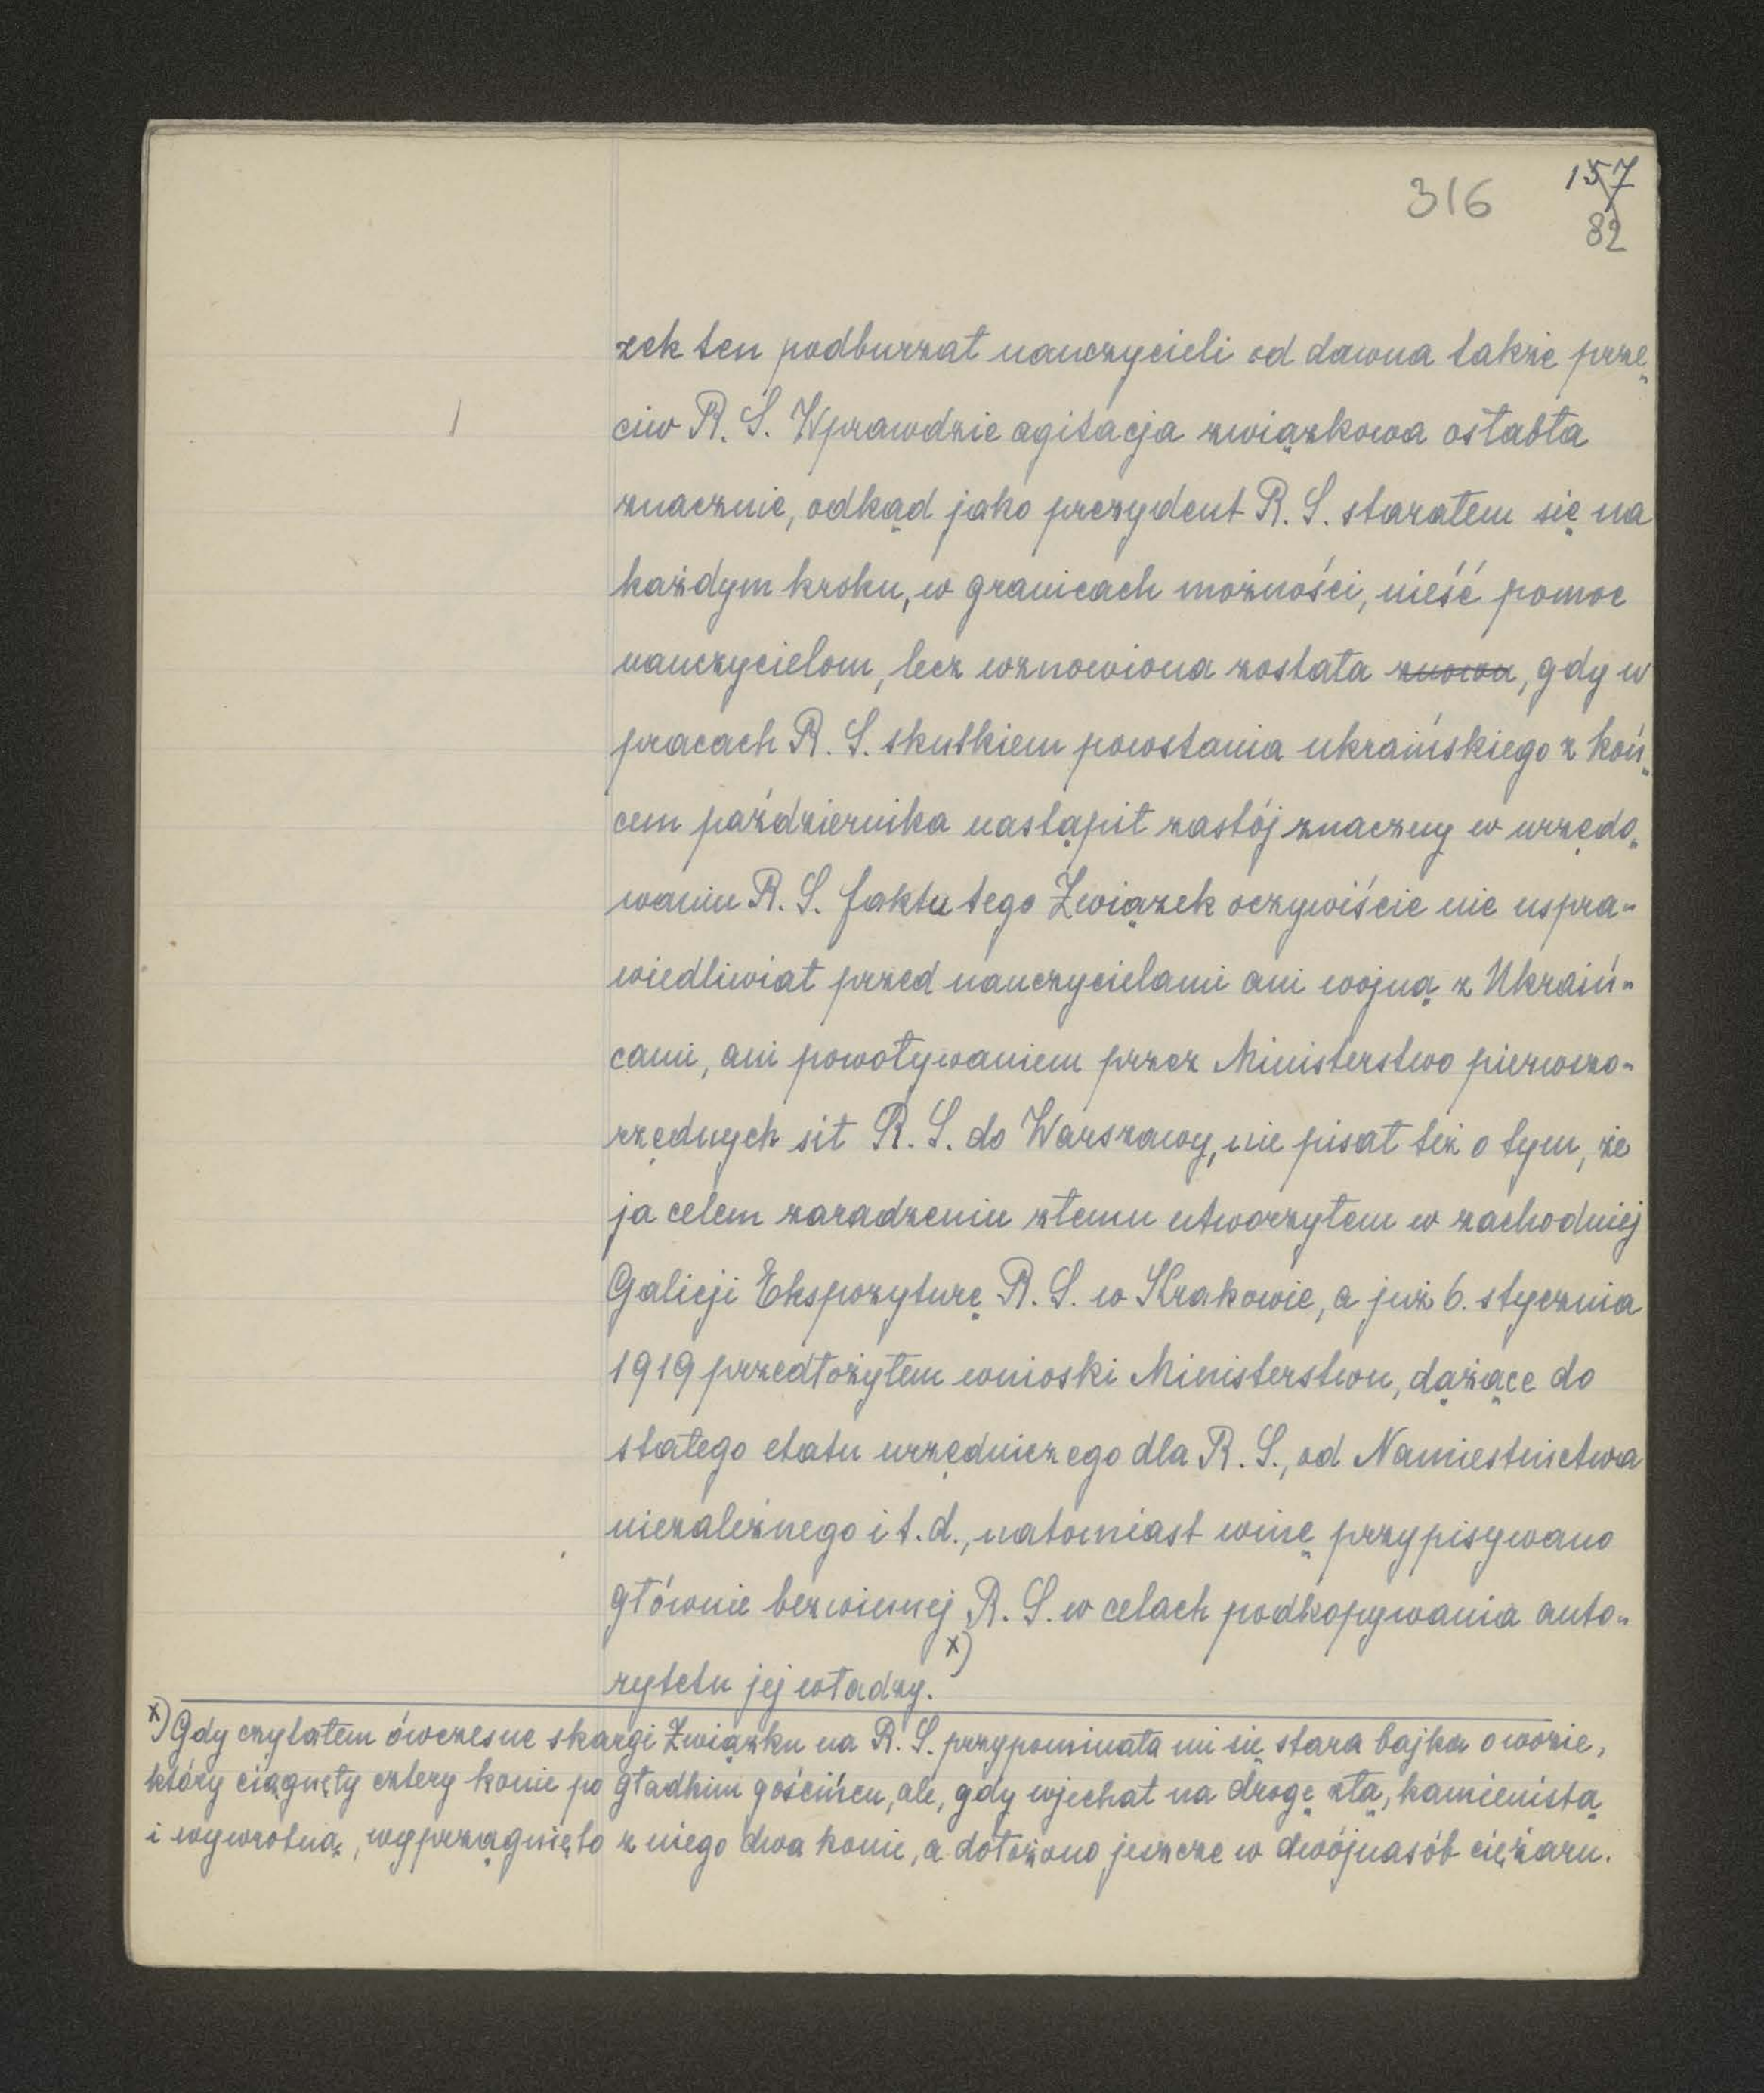 316
157
82
zek ten podburzał nauczycieli od dawna także prze-
ciw R. S. Wprawdzie agitacja związkowa osłabła
znacznie, odkąd jako prezydent R. S. starałem się na
każdym kroku, w granicach możności, nieść pomoc
nauczycielom, lecz wznowiona została znowu, gdy w
pracach R. S. skutkiem powstania ukraińskiego z koń-
cem października nastąpił zastój znaczny w urzędo-
waniu R. S. faktu tego Związek oczywiście nie uspra-
wiedliwiał przed nauczycielami ani wojną z Ukraiń-
cami, ani powoływaniem przez Ministerstwo pierwszo-
rzędnych sił R. S. do Warszawy, nie pisał też o tym, że
ja celem zaradzeniu złemu utworzyłem w zachodniej
Galicji Ekspozyturę R. S. w Krakowie, a już 6. stycznia
1919 przedłożyłem wnioski Ministerstwu, dążące do
stałego etatu urzędniczego dla R. S., od Namiestnictwa
niezależnego i t. d., natomiast winę przypisywano
głównie bezwinnej R. S. w celach podkopywania auto-
rytetu jej władzy. x)
x) Gdy czytałem ówczesne skargi Związku na R. S. przypominała mi się stara bajka o wozie,
który ciągnęły cztery konie po gładkim gościńcu, ale, gdy wjechał na drogę złą, kamienistą
i wywrotną, wyprzągnięto z niego dwa konie, a dołożono jeszcze w dwójnasób ciężaru.